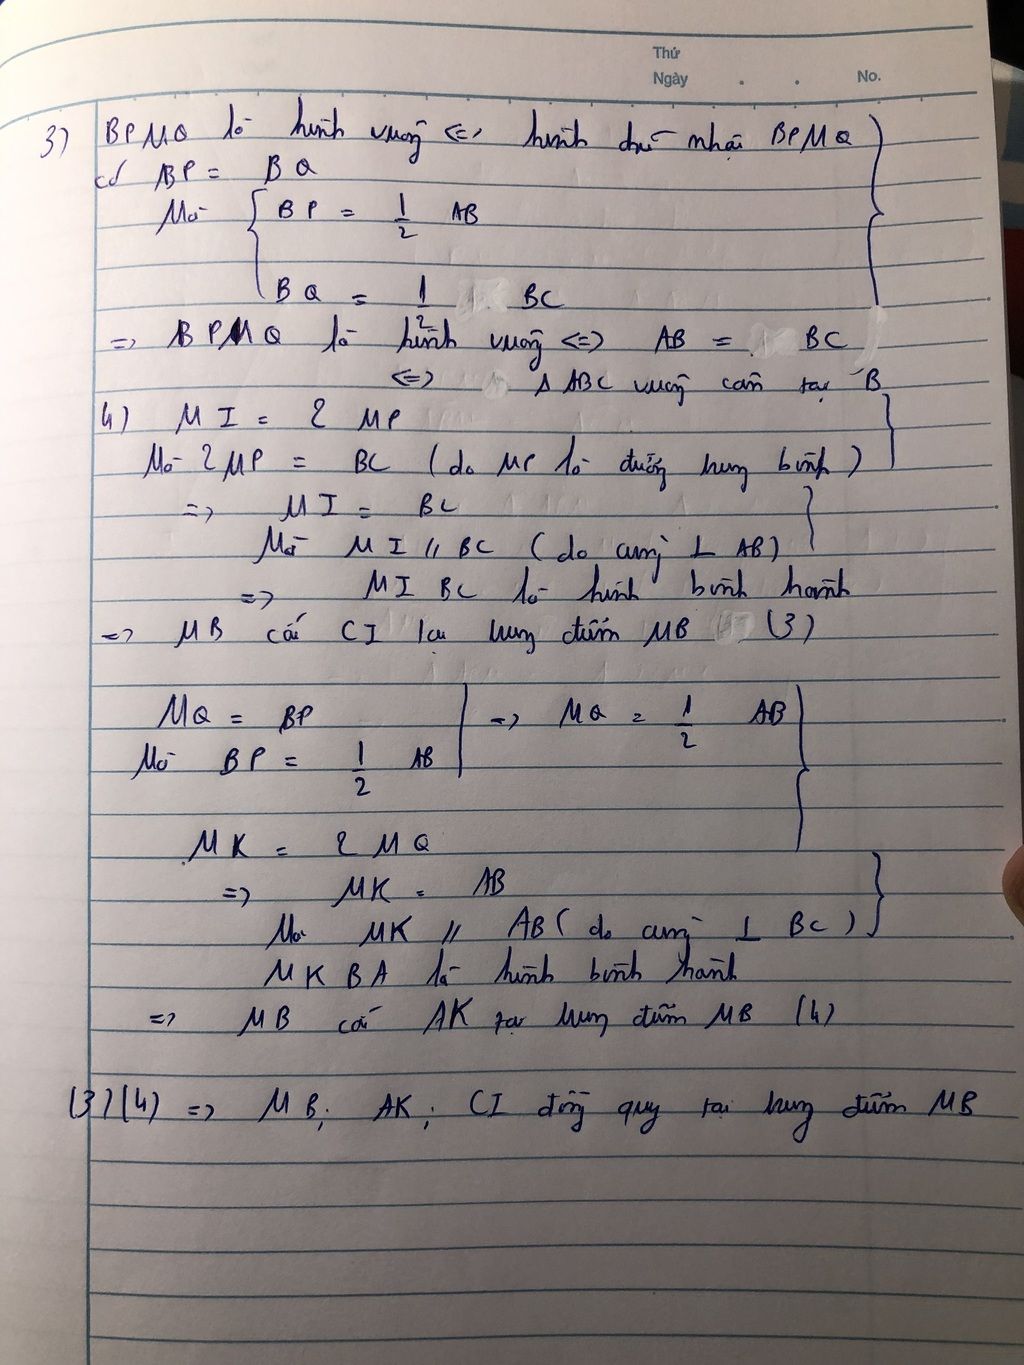 Thứ
Ngày . . No.
3) BPMQ là hình vuông <=> hình chữ nhật BPMQ
có BP = BQ
Mà BP = 1/2 AB
BQ = 1/2 BC
=> BPMQ là hình vuông <=> AB = BC
<=> Δ ABC vuông cân tại B
4) MI = 2 MP
Mà 2MP = BC (do MP là đường trung bình)
=> MI = BC
Mà MI // BC (do cùng ⊥ AB)
=> MIBC là hình bình hành
=> MB cắt CI tại trung điểm MB (3)
MQ = BP => MQ = 1/2 AB
Mà BP = 1/2 AB
MK = 2 MQ
=> MK = AB
Mà MK // AB (do cùng ⊥ BC)
MKBA là hình bình hành
=> MB cắt AK tại trung điểm MB (4)
(3)(4) => MB; AK; CI đồng quy tại trung điểm MB